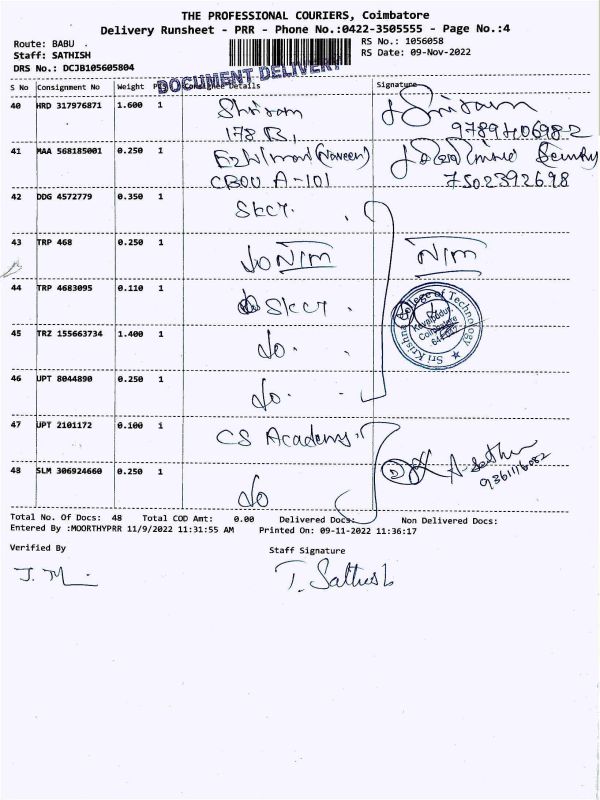 THE PROFESSIONAL COURIERS, Coimbatore
Delivery Runsheet - PRR - Phone No.:0422-3505555 - Page No.:4
Route: BABU .
RS No.: 1056058
Staff: SATHISH
RS Date: 09-Nov-2022
DRS No.: DCJB105605804
DOCUMENT DELIVERY
S No Consignment No Weight Consignee Details Signature
40 HRD 317976871 1.600 1 Shriram
178 B,
41 MAA 568185001 0.250 1 (Naveen)
CBOU A-101 7502392698
42 DDG 4572779 0.350 1 SKCT.
43 TRP 468 0.250 1 Do
44 TRP 4683095 0.110 1 SKCT
Sri Krishna College of Technology
Kovaipudur,
Coimbatore
45 TRZ 155663734 1.400 1 Do.
46 UPT 8044890 0.250 1 Do.
47 UPT 2101172 0.100 1 CS Academy.
48 SLM 306924660 0.250 1 Do
Total No. Of Docs: 48 Total COD Amt: 0.00 Delivered Docs: Non Delivered Docs:
Entered By :MOORTHYPRR 11/9/2022 11:31:55 AM Printed On: 09-11-2022 11:36:17
Verified By Staff Signature
T. Sathish